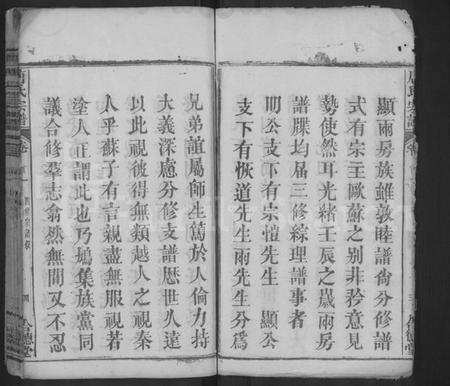 顯兩房族雖敦睦譜尙分修譜
式有宗王歐蘇之別非矜意見
勢使然耳光緒壬辰之歲兩房
譜牒均屆三修綜理譜事者
明公支下有宗愷先生　顯公
支下有恢道先生兩先生分爲
兄弟誼屬師生篤於人倫力持
大義深慮分修支譜歷世久遠
以此視彼得無類越人之視秦
人乎蘇子有言親盡無服視若
塗人正謂此也乃鳩集族黨同
議合修羣志翕然無間又不忍
氏宗譜
卷
四
德堂